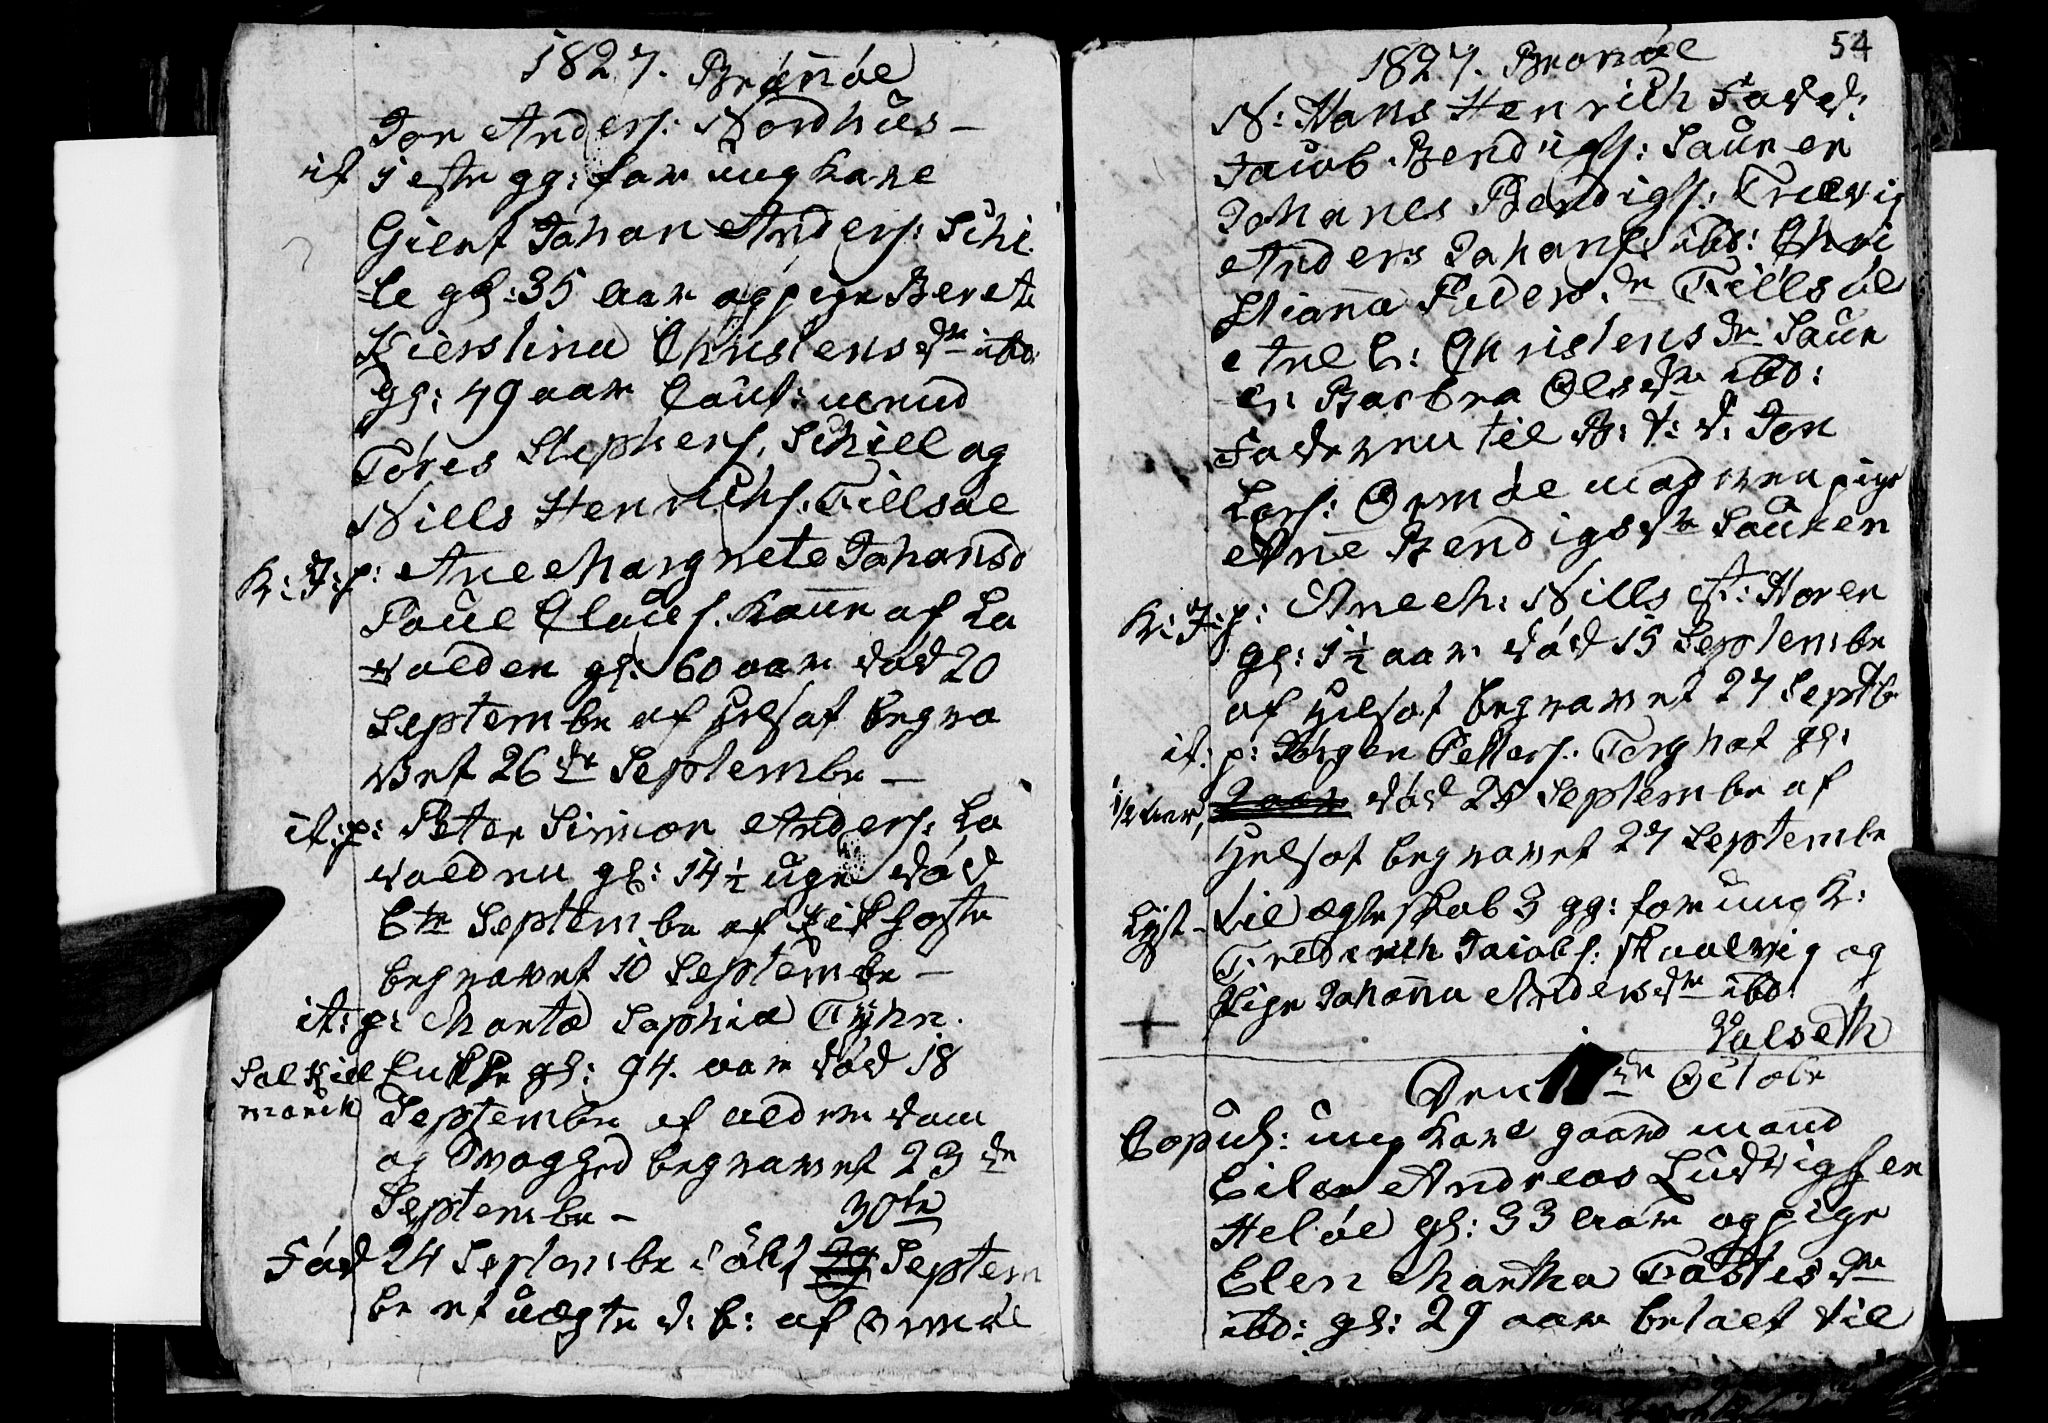 1827. Brönöe
Jon Anders: Nordhues –
it 1 ste gg: for ung Karl
Giert Johan Anders: Schi
=le gl: 35 aar og pige Berete
Kierstina Christensdr ibd:
gl: 49 aar Caut:
Töres Stephens. Schiell og
Nills Henrichs: Tillsöe
K: J: p: Ane Margrete Johansd
Poul Clau s. Kone af La
valden gl: 60 aar död 20
Septembr af begra
vet 26 de Septembr –
it: p: Peter Simon Anders: La
valden gl: 14 ½ uger död
6te Septembr af Kikhoste
begravet 10 Septembr –
it: p: Marta Sophia Tÿhn.
Salhuus Enke gl: 94. aar död 18
Septembr af alderdom
og Svaghed begravet 23 de
Septembr –
30te
Föd 24 Septembr döbt 29 Septem
br et uægte d: b: af

54
1827. Brönöe
N: Hans Henrich Fad:
Jacob Bendigs: Sauren
Johanes Bendigs: Trælvig
Anders Johans: ibd: Chri
stianna Pedersdr Tillsöe
Ane C: Christensdr Saur
en Barbra Olsdr ibd:
Faderen til B: Jon
Lars: Ormöe Moderen pige
Ane Bendigsdr Sauren
K: J: p: Ane M: Nills Horen
gl: 1 ½ aar död 15 Septembr
af begravet 27 Septbr
it: p: Jörgen Petters: Torghat gl:
1/2 aar, 2 aar död 25 Septembr af
begravet 27 Septembr
Lyst – til ægteskab 3 gg: for ung K:
Frederich Jacobs: Skaalvig og
Pige Johanna Andersdr ibd:
+
Valseth
Den de Octobr
Copul: ung Karl gaard mand
Eiler Andreas Ludvigsen
Helöe gl: 33 aar og pige
Elen Martha Tostesdr
ibd: gl: 29 aar betalt til